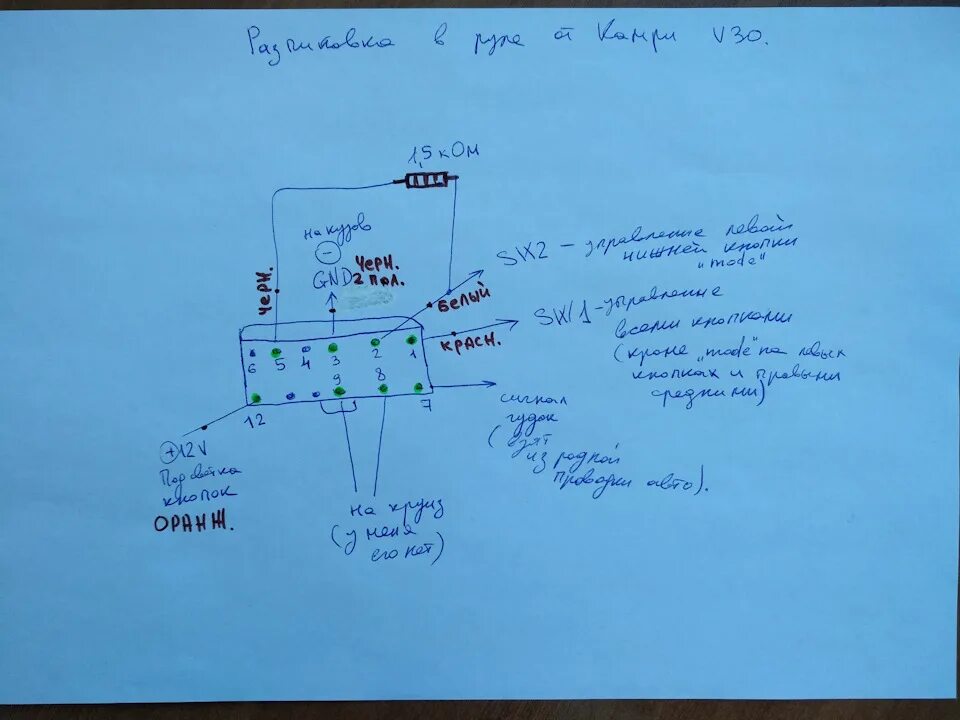 Распиновка в руле от Камри V30.
1,5 кОм
на кузов
−
GND
ЧЕРН.
2 ПОЛ.
ЧЕРН.
БЕЛЫЙ
SW2 – управление левой
нижней кнопки
"mode"
SW1 – управление
всеми кнопками
(кроме "mode" на левых
кнопках и правыми
средними)
КРАСН.
6 5 4 3 2 1
9 8
12 7
сигнал
гудок
(взят
из родной
проводки авто).
+12V
Подсветка
кнопок
ОРАНЖ.
на круиз
(у меня
его нет)